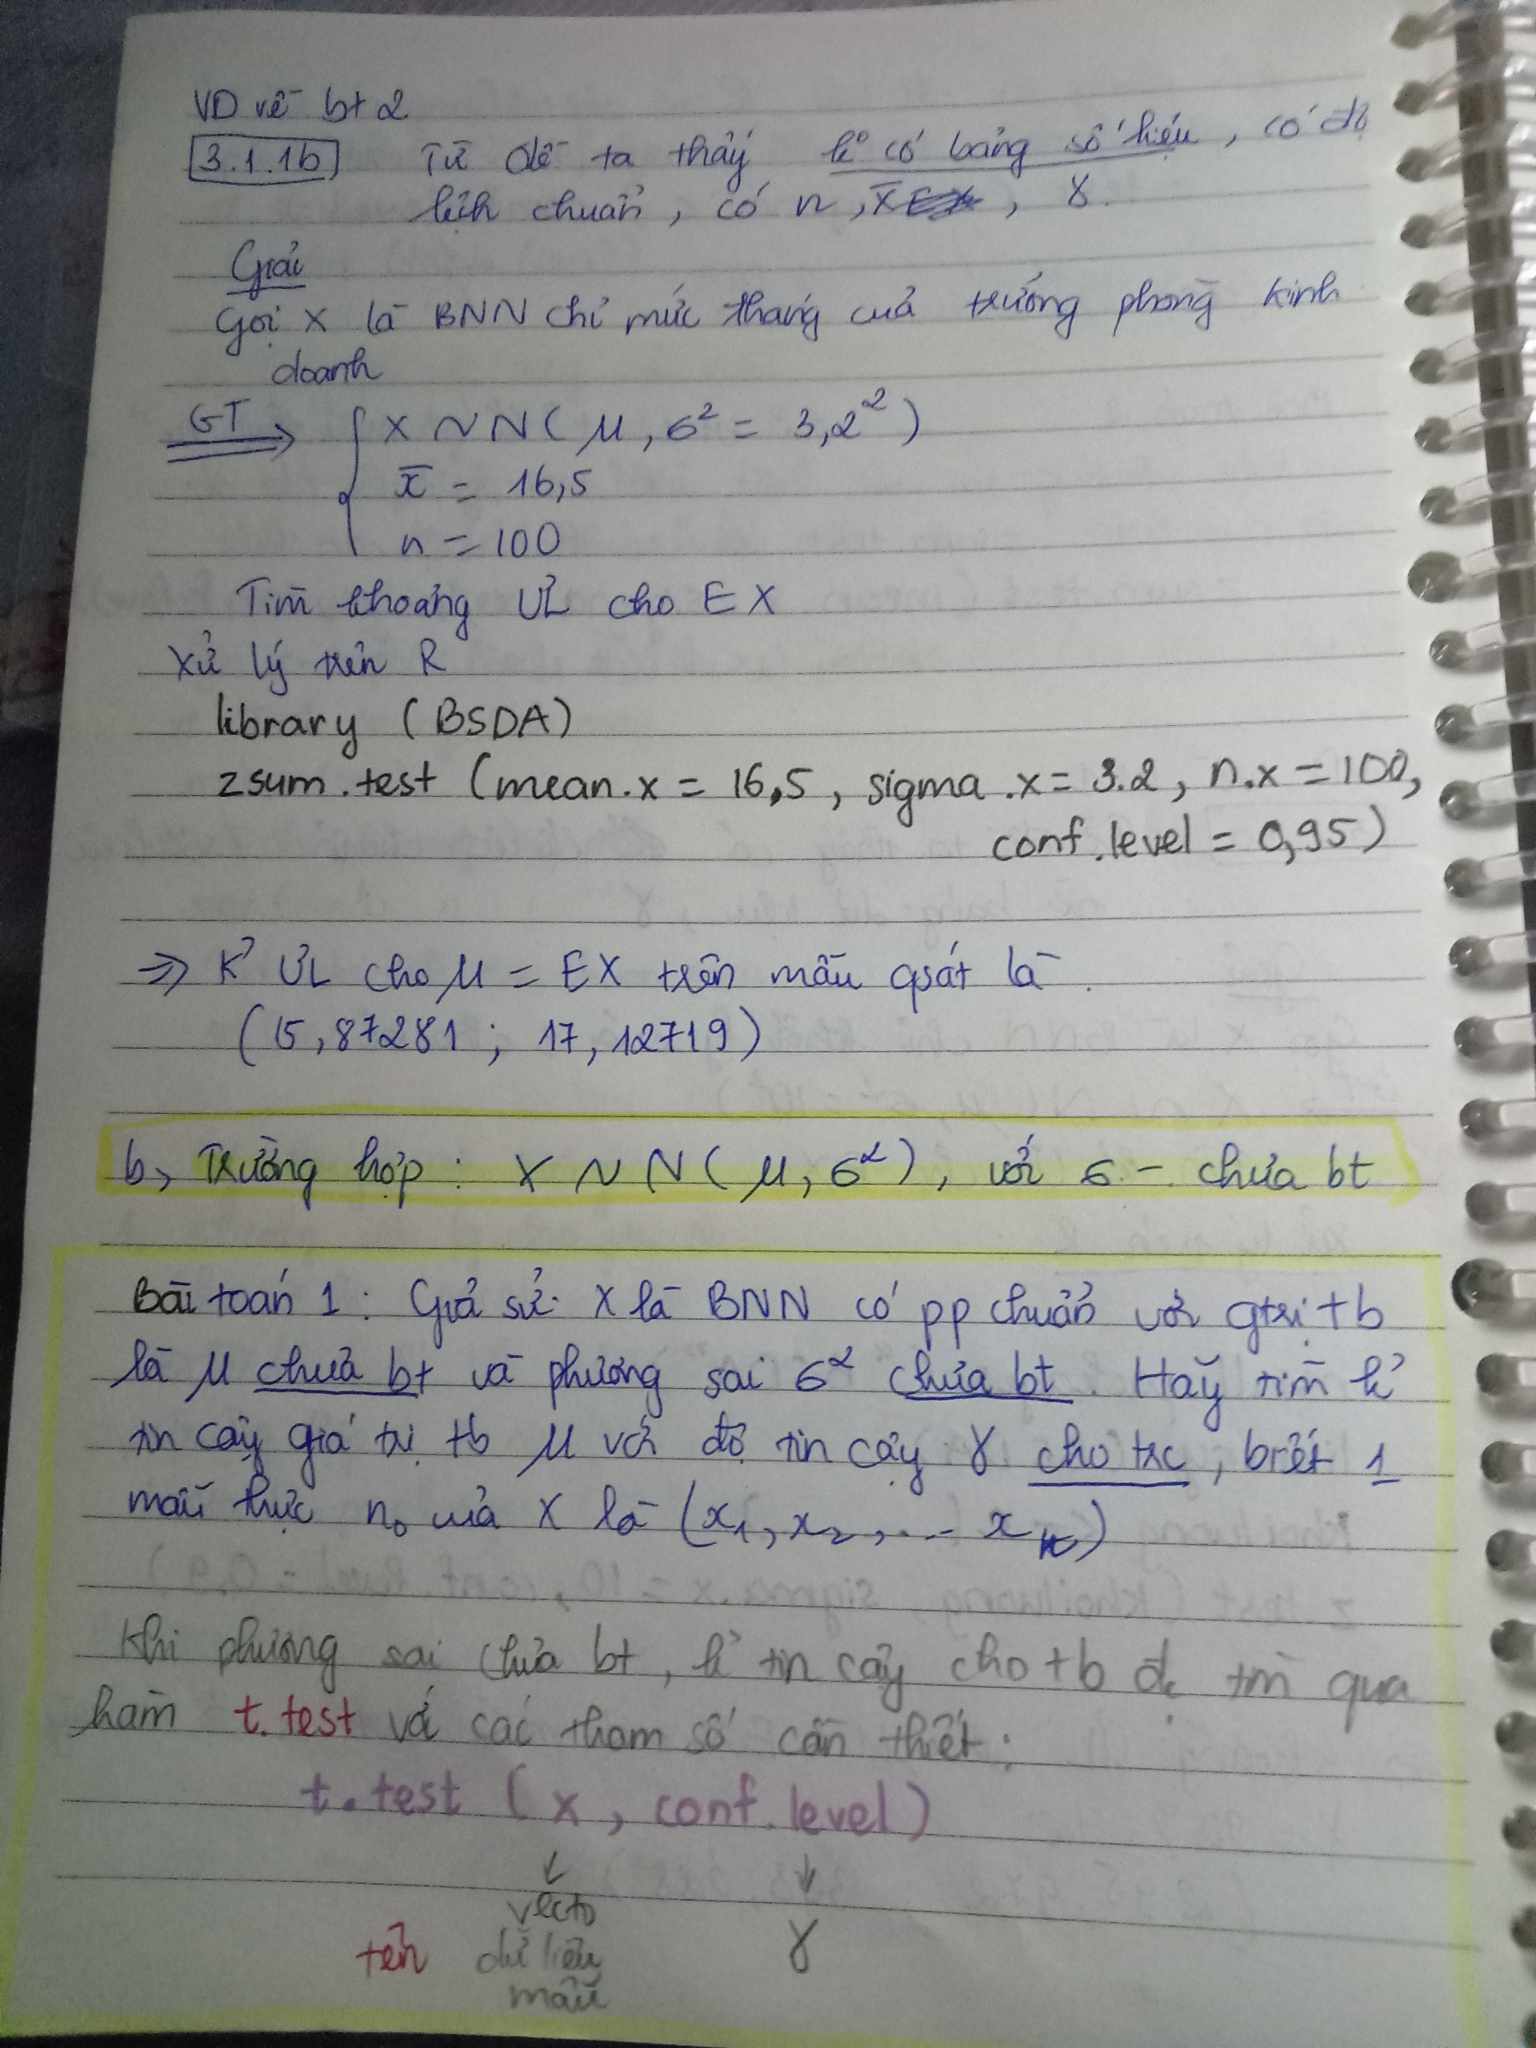 VD về bt 2
3.1.1b Từ đề ta thấy k° có bảng số liệu, có độ
lệch chuẩn, có n, x̄, γ.
Giải
Gọi X là BNN chỉ mức tháng của trưởng phòng kinh
doanh
GT ⟹ { X ~ N(μ, σ² = 3,2²)
x̄ = 16,5
n = 100
Tìm khoảng ƯL cho EX
Xử lý trên R
library (BSDA)
zsum.test (mean.x = 16,5, sigma.x = 3.2, n.x = 100,
conf.level = 0,95)
⇒ K² ƯL cho μ = EX trên mẫu qsát là
(15,87281 ; 17,12719)
b, Trường hợp: X ~ N(μ, σ²), với σ - chưa bt
Bài toán 1: Giả sử X là BNN có pp chuẩn với gtrị tb
là μ chưa bt và phương sai σ² chưa bt. Hãy tìm k²
tin cậy giá trị tb μ với độ tin cậy γ cho trc, biết 1
mẫu thực no của X là (x₁, x₂, ... xₙ)
Khi phương sai chưa bt, k² tin cậy cho tb đc tìm qua
hàm t.test với các tham số cần thiết:
t.test (x, conf.level)
↓ ↓
vecto γ
tên dữ liệu
mẫu